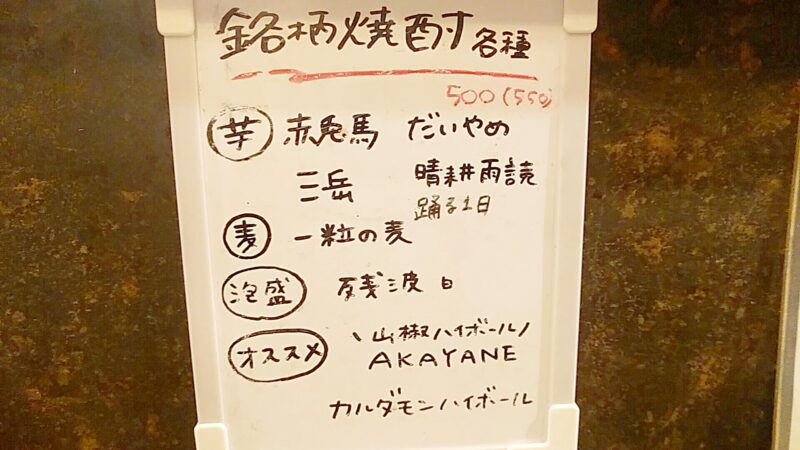 銘柄焼酎各種
500(550)
芋 赤兎馬 だいやめ
三岳 晴耕雨読
踊る
麦 一粒の麦
泡盛 残波 白
オススメ \山椒ハイボール/
AKAYANE
カルダモンハイボール